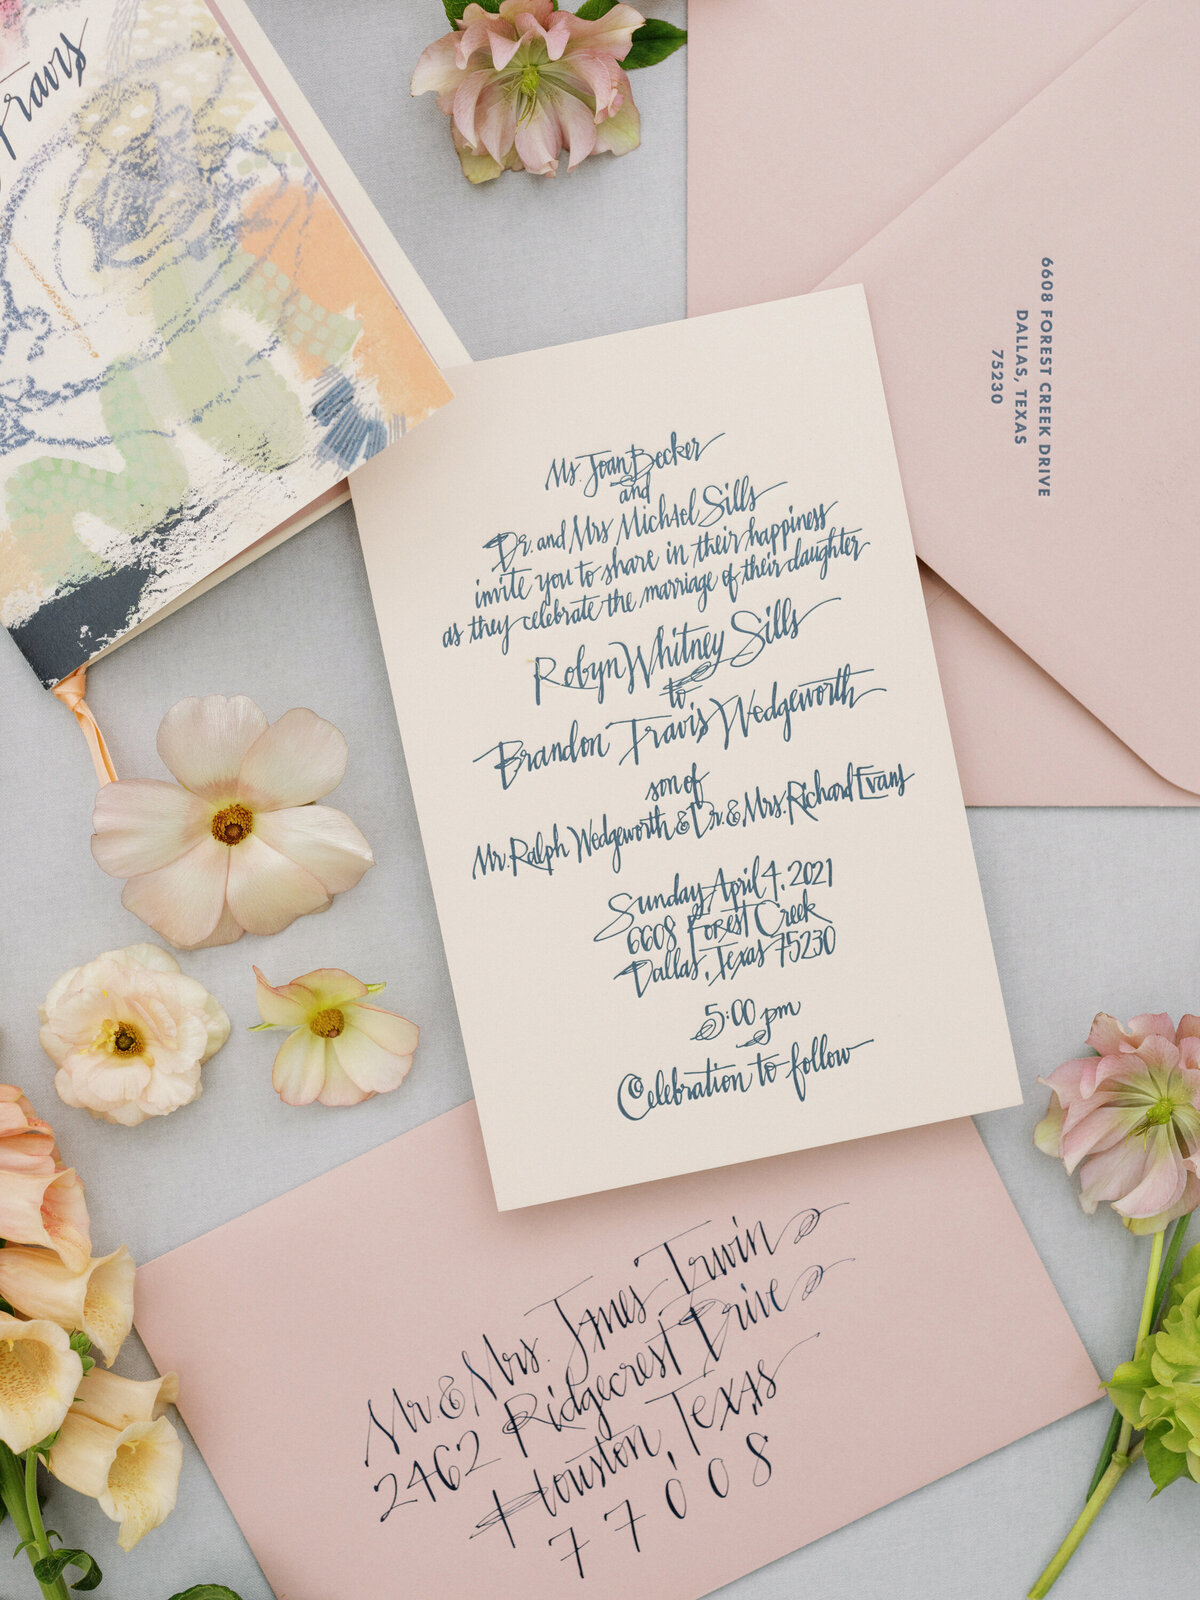 Travis
6608 FOREST CREEK DRIVE
DALLAS, TEXAS
75230
Ms. Joan Becker
and
Dr. and Mrs Michael Sills
invite you to share in their happiness
as they celebrate the marriage of their daughter
Robyn Whitney Sills
to
Brandon Travis Wedgeworth
son of
Mr. Ralph Wedgeworth & Dr. & Mrs. Richard Evans
Sunday April 4, 2021
6608 Forest Creek
Dallas, Texas 75230
5:00 pm
Celebration to follow
Mr. & Mrs. James Irwin
2462 Ridgecrest Drive
Houston, Texas
77008